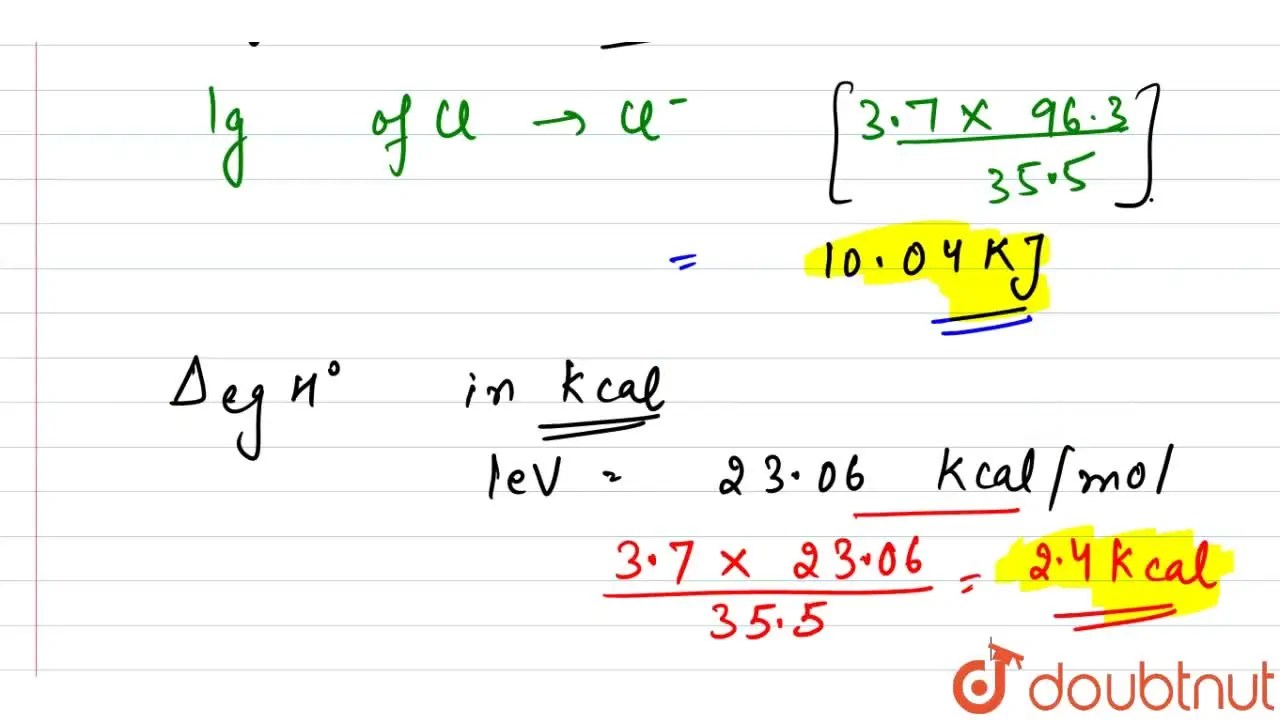 1g of Cl → Cl⁻ [3.7 × 96.3 / 35.5]
= 10.04 KJ
ΔegH° in Kcal
1eV = 23.06 Kcal/mol
3.7 × 23.06 / 35.5 = 2.4 Kcal
doubtnut